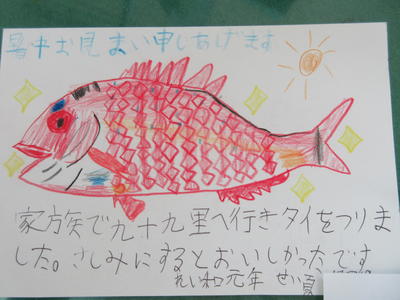 暑中お見まい申しあげます
家族で九十九里へ行きタイをつりま
した。さしみにするとおいしかったです
れい和元年 せい夏